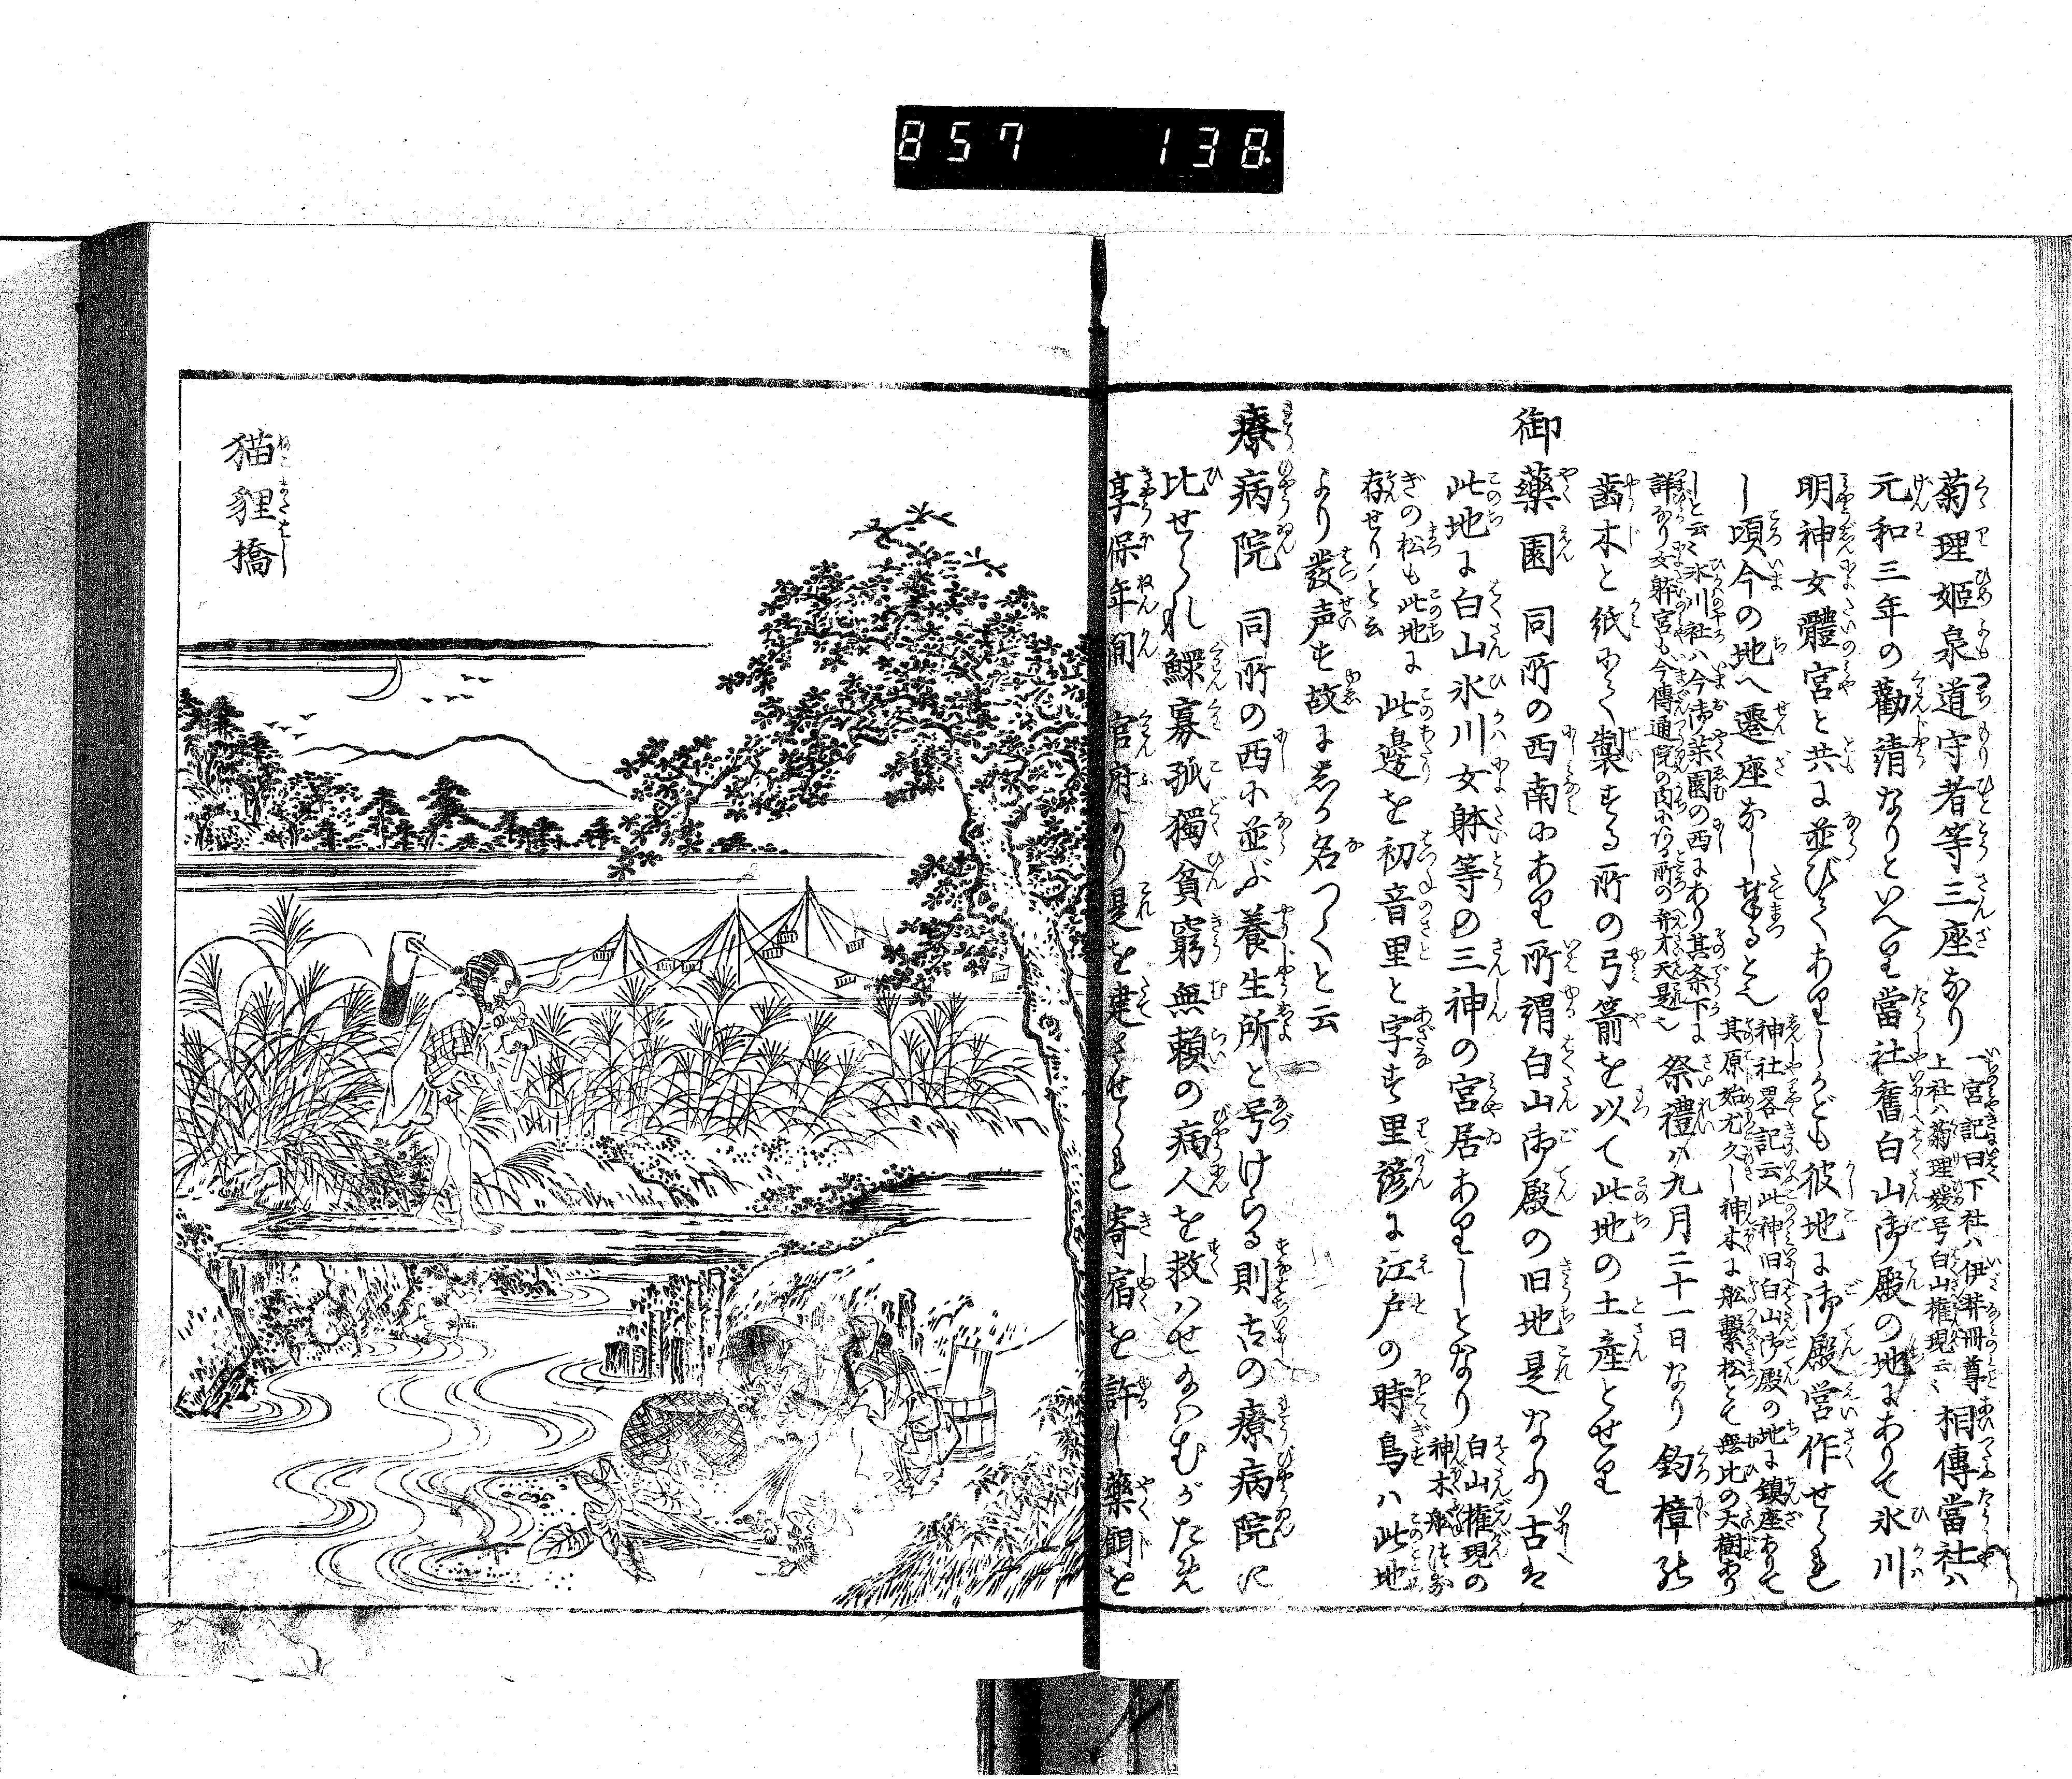 857 138
菊理姫泉道守者等三座なり 一宮記曰下社ハ伊弉冊尊
上社ハ菊理媛号白山権現云く 相傳當社ハ
元和三年の勸請なりといへり當社舊白山御殿の地にありて氷川
明神女體宮と共に並びてありしかども彼地に御殿営作せられ
し頃今の地へ遷座なし奉るとぞ 神社畧記云此神旧白山御殿の地に鎮座ありて
其原始尤久し神木に舩繋松とて無比の大樹あり
しと云く氷川社ハ今御薬園の西にあり其条下に
詳なり女躰宮も今傳通院の内にある所の弁才天是也 祭禮ハ九月二十一日なり 釣樟能
歯木と紙にて製する所の弓箭を以て此地の土産とせり
御藥園 同所の西南にあり所謂白山御殿の旧地是なり古は
此地に白山氷川女躰等の三神の宮居ありしとなり 白山権現の
神木舩つな
ぎの松も此地に
存せりと云 此邊を初音里と字す里諺に江戸の時鳥ハ此地
より發声す故にしか名つくと云
療病院 同所の西に並ぶ養生所と号けらる則古の療病院に
比せられ鰥寡孤獨貧窮無頼の病人を救ハせ給ハむがため
享保年間 官府より是を建させられ寄宿を許し藥餌を
猫狸橋